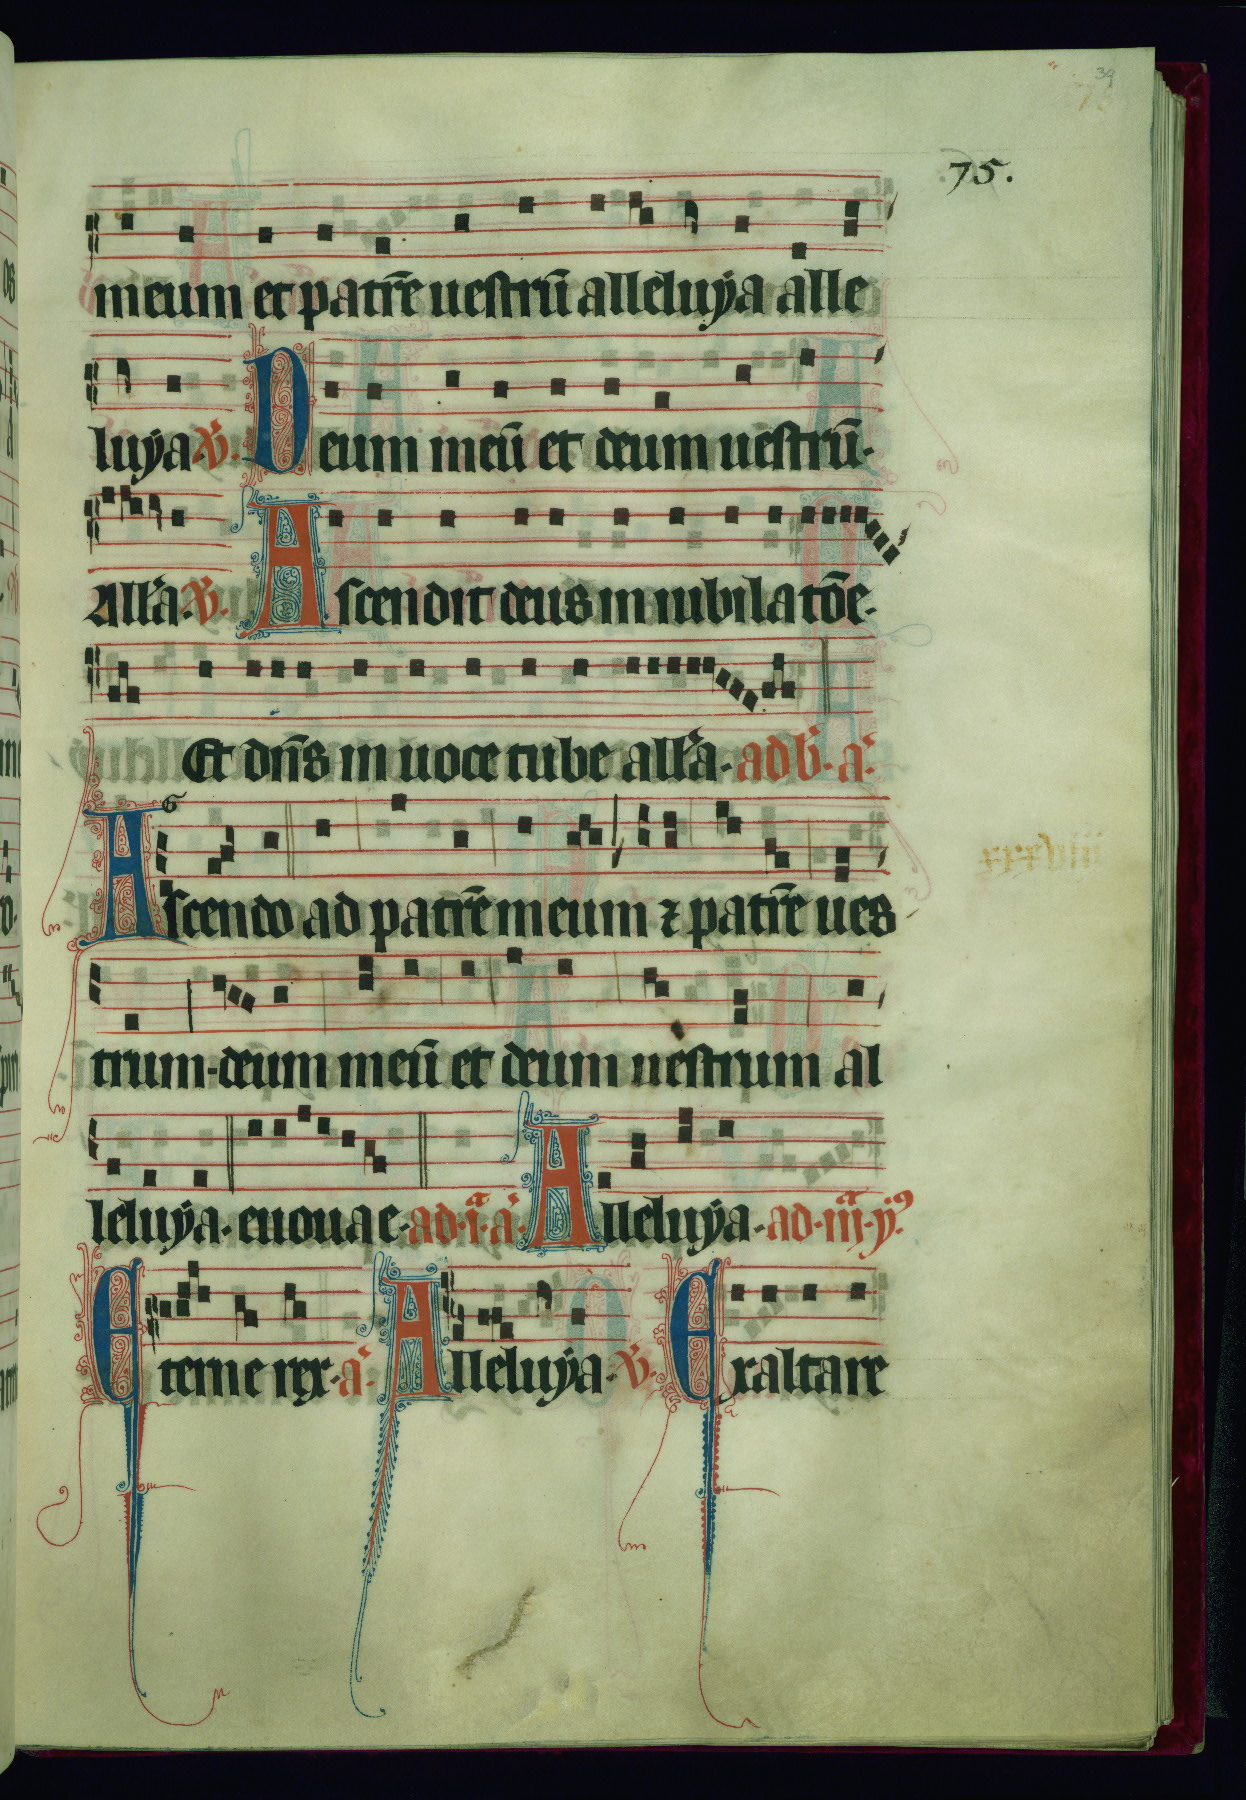 39
75.
meum et patr̄e uestrū alleluẏa alle
luẏa. V̄. Deum meū et deum uestrū.
All'a. V̄. Ascendit deus in iubilatōe.
Et dn̄s in uoce tube all'a. ad b'. a.
G
Ascendo ad patr̄e meum ⁊ patr̄e ues
trum. deum meū et deum uestrum al
leluẏa. euouae. ad. i.ᵃ a. Alleluẏa. ad. iii.ᵃ y.ꝰ
Eterne rex. a. Alleluẏa. V̄. Exaltare